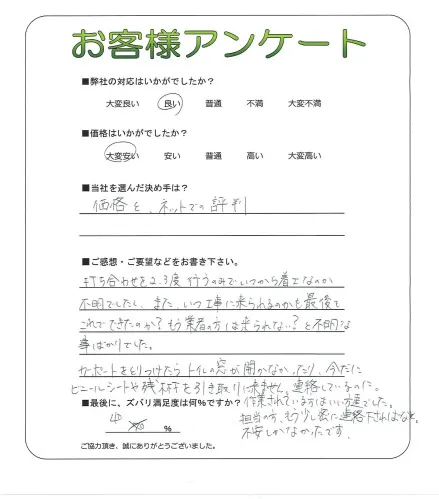 お客様アンケート
■弊社の対応はいかがでしたか?
大変良い 良い 普通 不満 大変不満
■価格はいかがでしたか?
大変安い 安い 普通 高い 大変高い
■当社を選んだ決め手は?
価格と、ネットでの評判
■ご感想・ご要望などをお書き下さい。
打ち合わせを2、3度行うのみでいつから着工なのか
不明でしたし、また、いつ工事に来られるのかも最後で
これでできたのか?もう業者の方は来られない?と不明な
事ばかりでした。
カーポートをとりつけたらトイレの窓が開かなかったり、今だに
ビニールシートや残材を引き取りに来ません。連絡しているのに。
■最後に、ズバリ満足度は何%ですか?
作業されている方はいい方達でした。
担当の方、もう少し密に連絡下さればなと。
不安しかなかったです。
40 %
ご協力頂き、誠にありがとうございました。